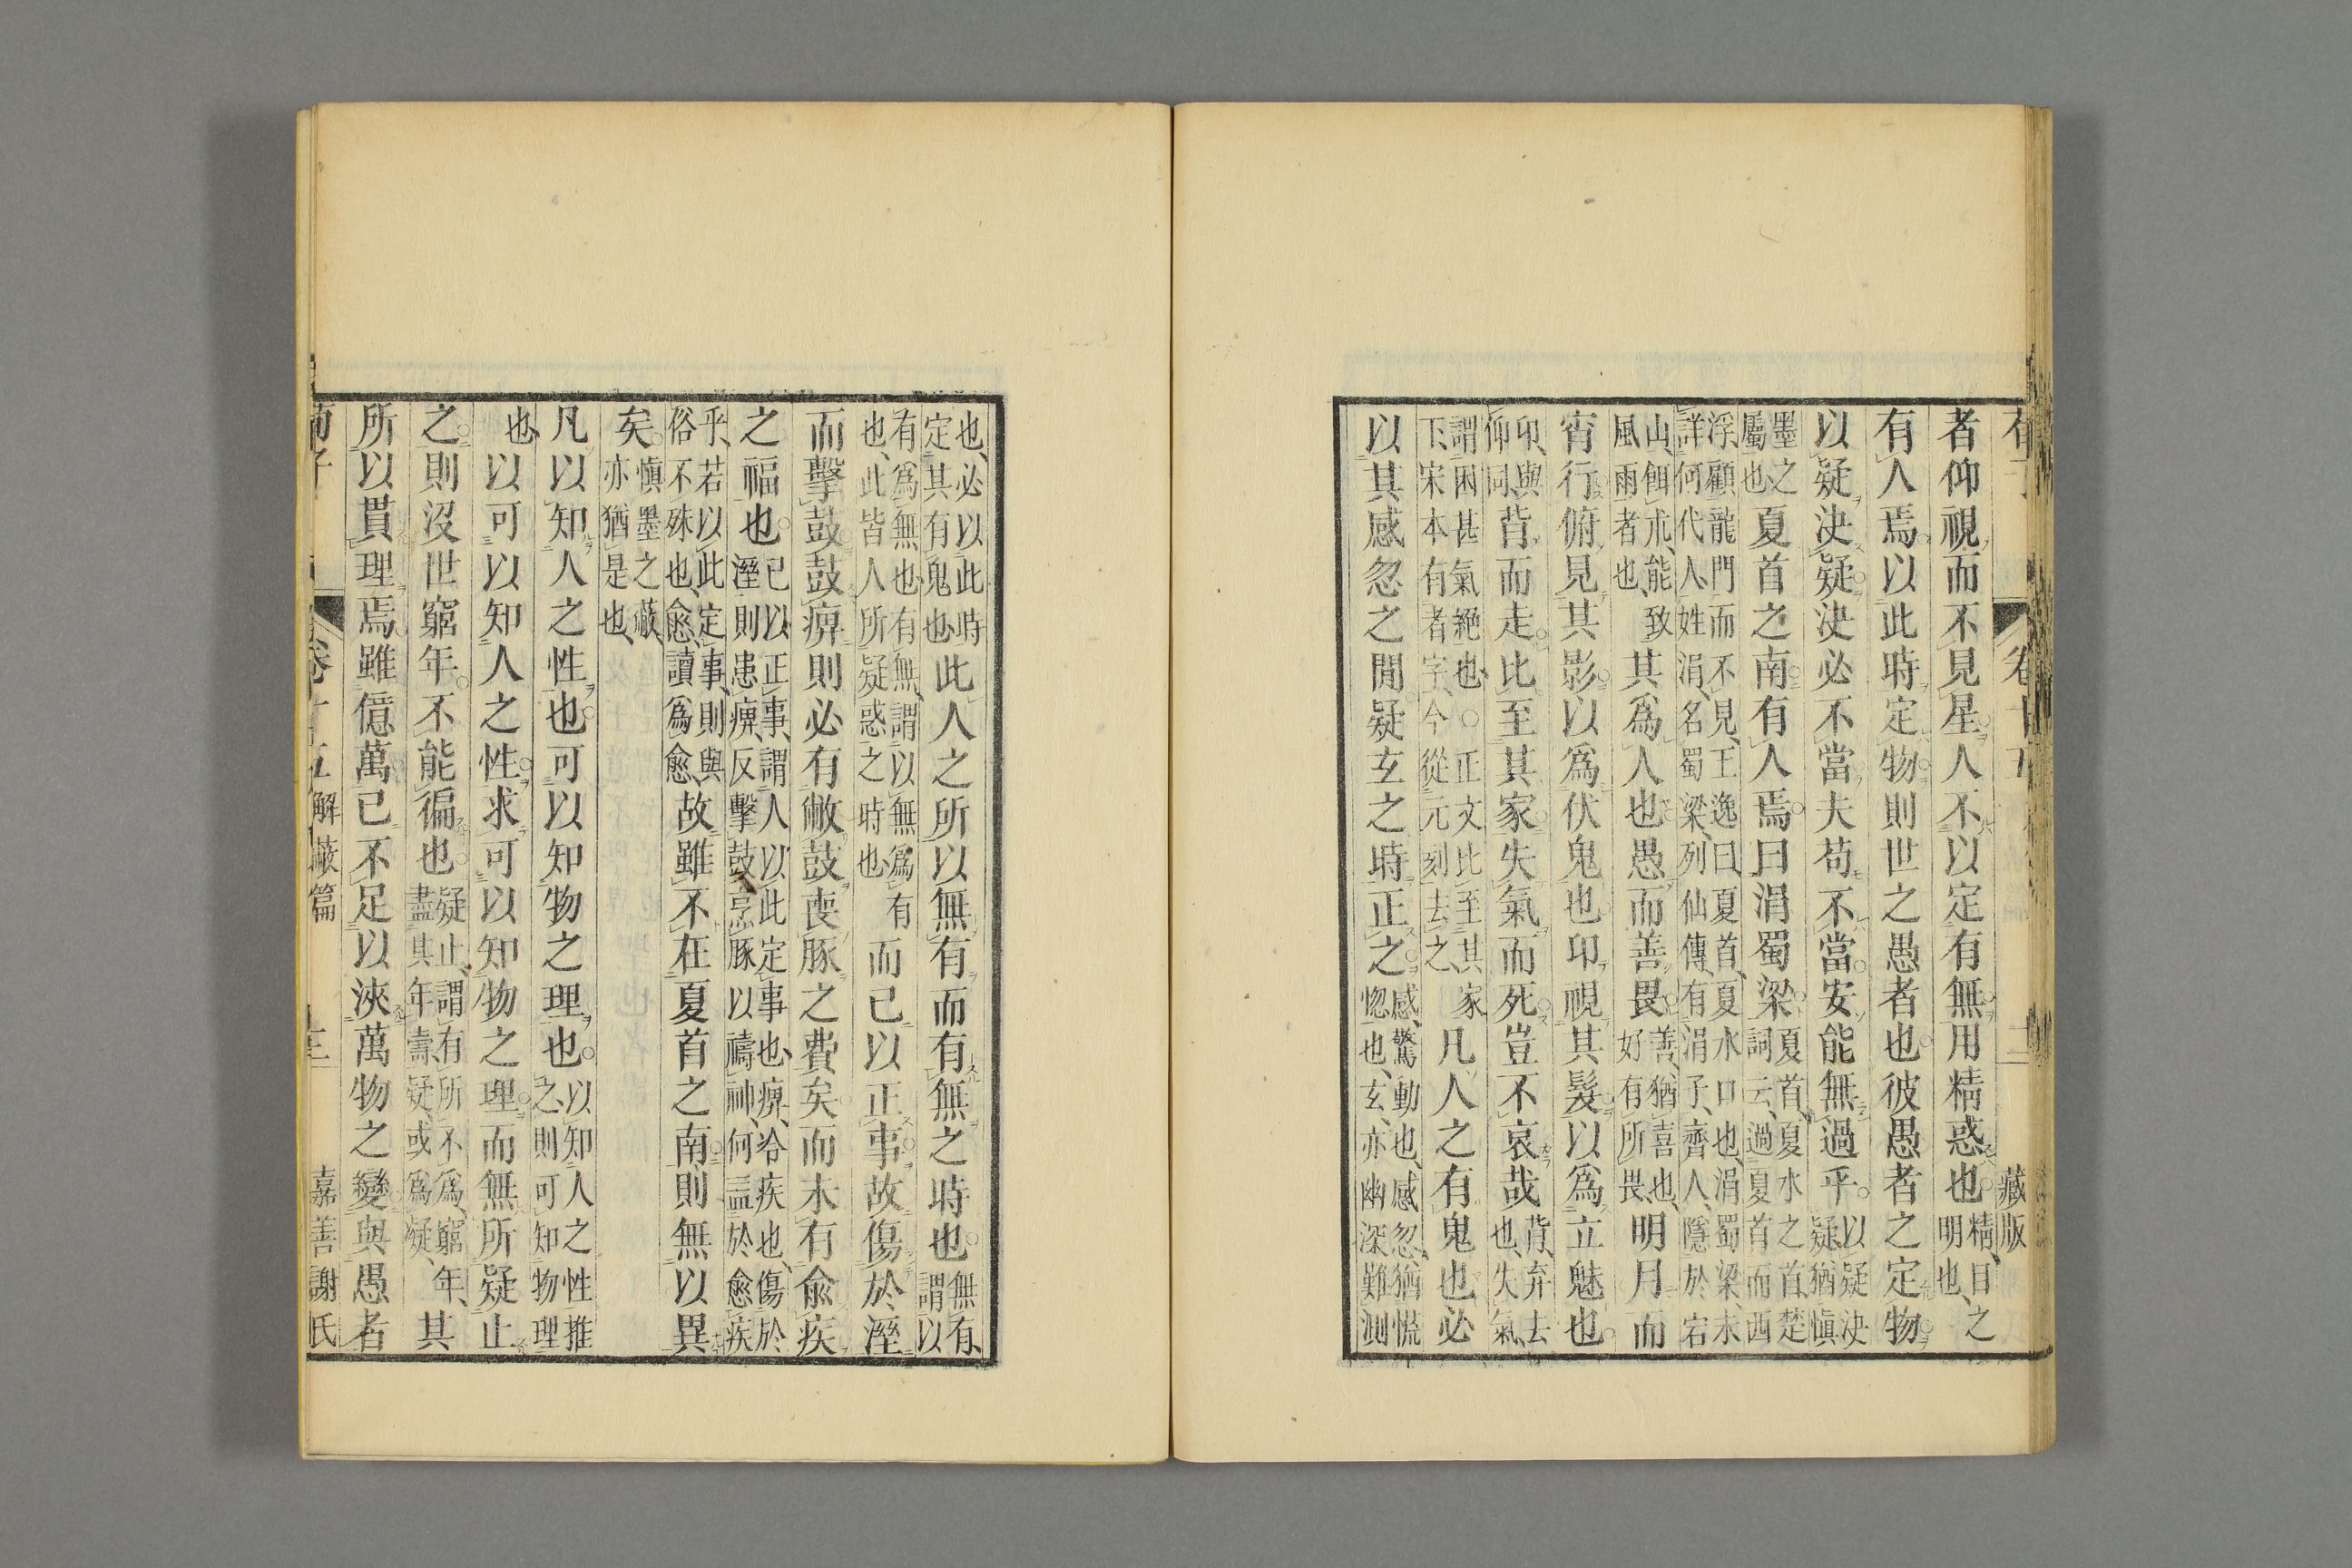 卷十五
藏版
者仰視而不見星人不以定有無用精惑也精目之明也
有人焉以此時定物則世之愚者也彼愚者之定物
以疑決疑決必不當夫苟不當安能無過乎以疑決疑猶愼
墨之屬也夏首之南有人焉曰涓蜀梁夏首夏水之首楚詞云過夏首而西
浮顧龍門而不見王逸曰夏首夏水口也涓蜀梁未詳何代人姓涓名蜀梁列仙傳有涓子齊人隱於宕
山餌朮能致風雨者也其爲人也愚而善畏善猶喜也好有所畏明月而
宵行俯見其影以爲伏鬼也卬視其髮以爲立魅也
卬與仰同背而走比至其家失氣而死豈不哀哉背弃去也失氣
謂困甚氣絕也○正文比至其家下宋本有者字今從元刻去之凡人之有鬼也必
以其感忽之閒疑玄之時正之感驚動也感忽猶慌惚也玄亦幽深難測
也必以此時定其有鬼也此人之所以無有而有無之時也無有謂以
有爲無也有無謂以無爲有也此皆人所疑惑之時也而已以正事故傷於溼
而擊鼓鼓痹則必有敝鼓喪豚之費矣而未有俞疾
之福也已以正事謂人以此定事也痹冷疾也傷於溼則患痹反擊鼓烹豚以禱神何益於愈疾
乎若以此定事則與俗不殊也愈讀爲愈故雖不在夏首之南則無以異
矣愼墨之蔽亦猶是也
凡以知人之性也可以知物之理也以知人之性推之則可知物理
也以可以知人之性求可以知物之理而無所疑止
之則沒世窮年不能徧也疑止謂有所不爲窮年盡其年壽疑或爲凝其
所以貫理焉雖億萬已不足以浹萬物之變與愚者
荀子
卷十五
解蔽篇
嘉善謝氏